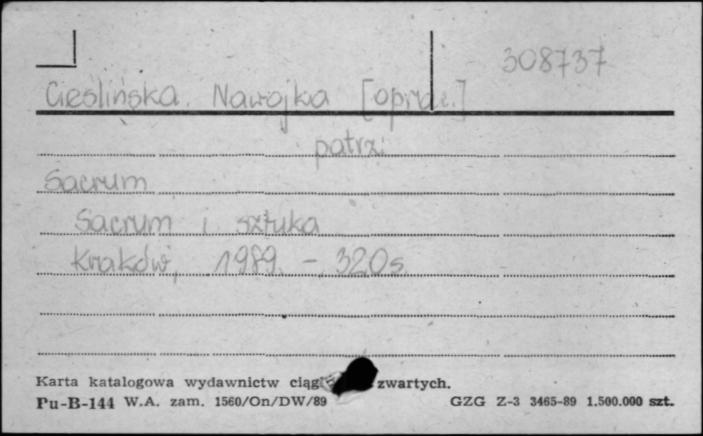 308737
Cieślińska Nawojka [oprac.]
patrz:
Sacrum
Sacrum i sztuka
Kraków, 1989. – 320 s.
Karta katalogowa wydawnictw zwartych.
Pu-B-144 W.A. zam. 1560/On/DW/89 GZG Z-3 3465-89 1.500.000 szt.